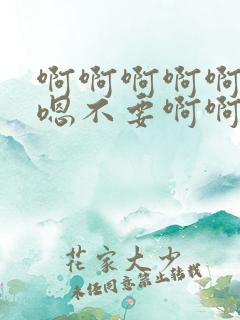 啊啊啊啊啊
嗯不要啊啊
花家大少
未经同意禁止转载